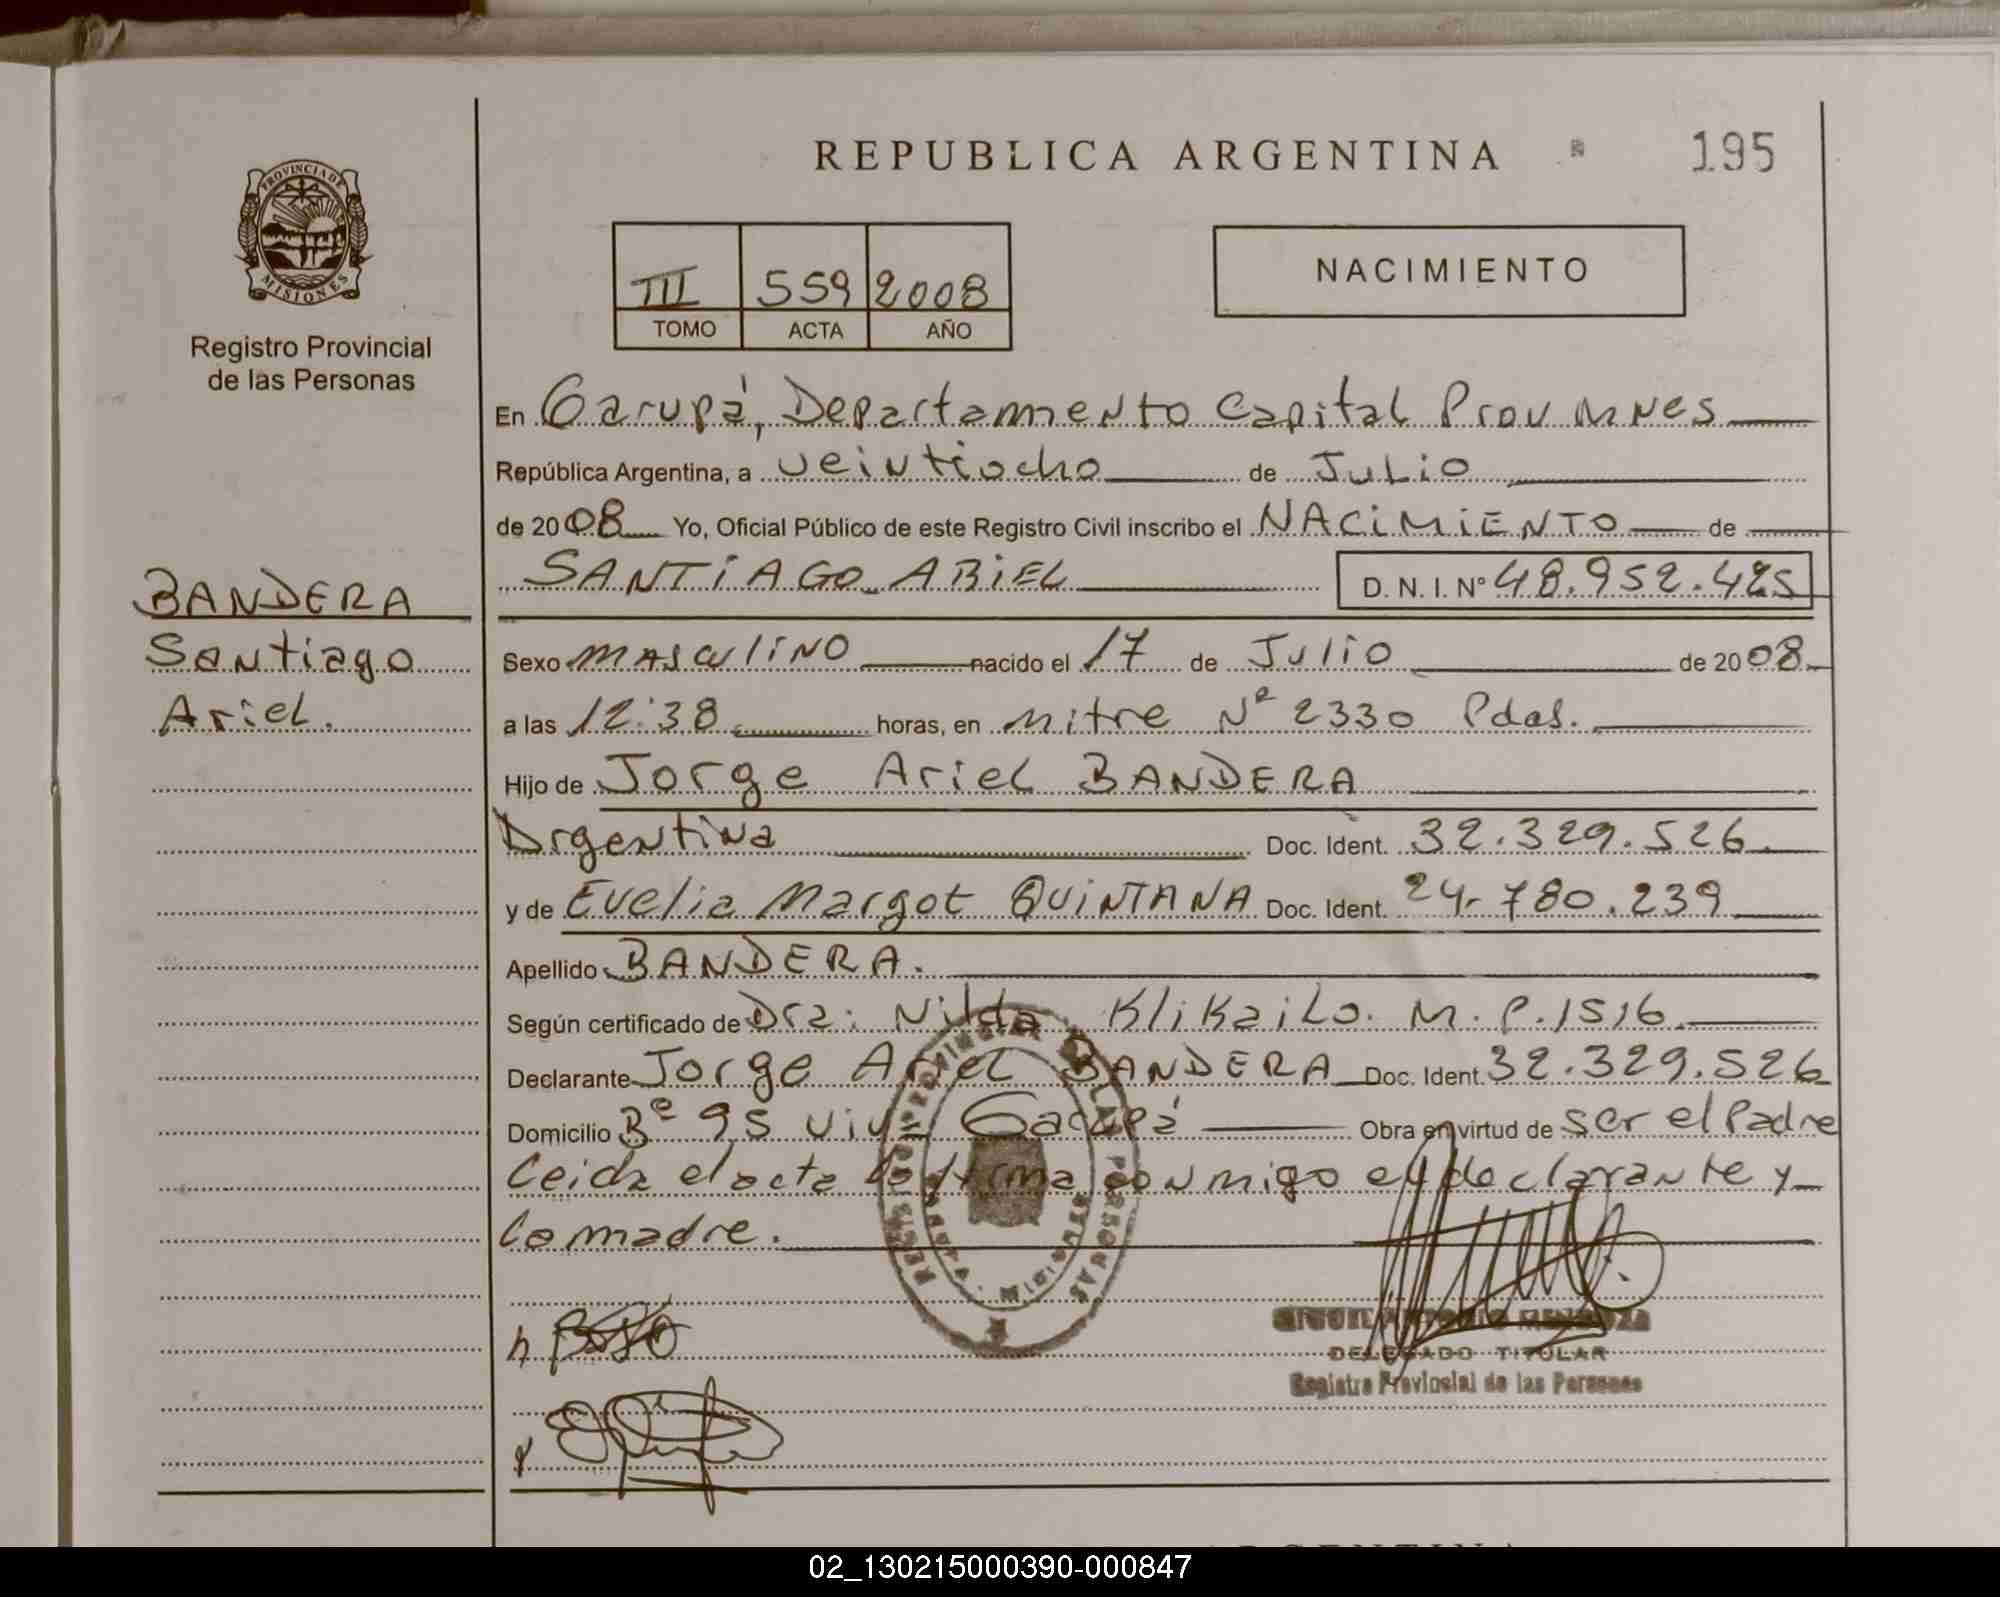 REPUBLICA ARGENTINA
195
PROVINCIA DE
MISIONES
Registro Provincial
de las Personas
III 559 2008
TOMO ACTA AÑO
NACIMIENTO
En Garupá, Departamento Capital Prov Mnes
República Argentina, a veintiocho de Julio
de 2008 Yo, Oficial Público de este Registro Civil inscribo el NACIMIENTO de
SANTIAGO ARIEL D. N. I. Nº 48.952.425
BANDERA
Santiago
Ariel.
Sexo masculino nacido el 17 de Julio de 2008
a las 12:38 horas, en mitre Nº 2330 Pdas.
Hijo de Jorge Ariel BANDERA
Argentina Doc. Ident. 32.329.526
y de Evelia Margot QUINTANA Doc. Ident. 24.780.239
Apellido BANDERA.
Según certificado de Dra: Nilda Klikailo. M.P.1516
Declarante Jorge Ariel BANDERA Doc. Ident. 32.329.526
Domicilio Bº 95 viv Garupá Obra en virtud de ser el Padre
Leida el acta la firma conmigo el declarante y
la madre.
REGISTRO PROVINCIAL DE LAS PERSONAS
MISIONES
MENDOZA
DELEGADO TITULAR
Registro Provincial de las Personas
02_130215000390-000847